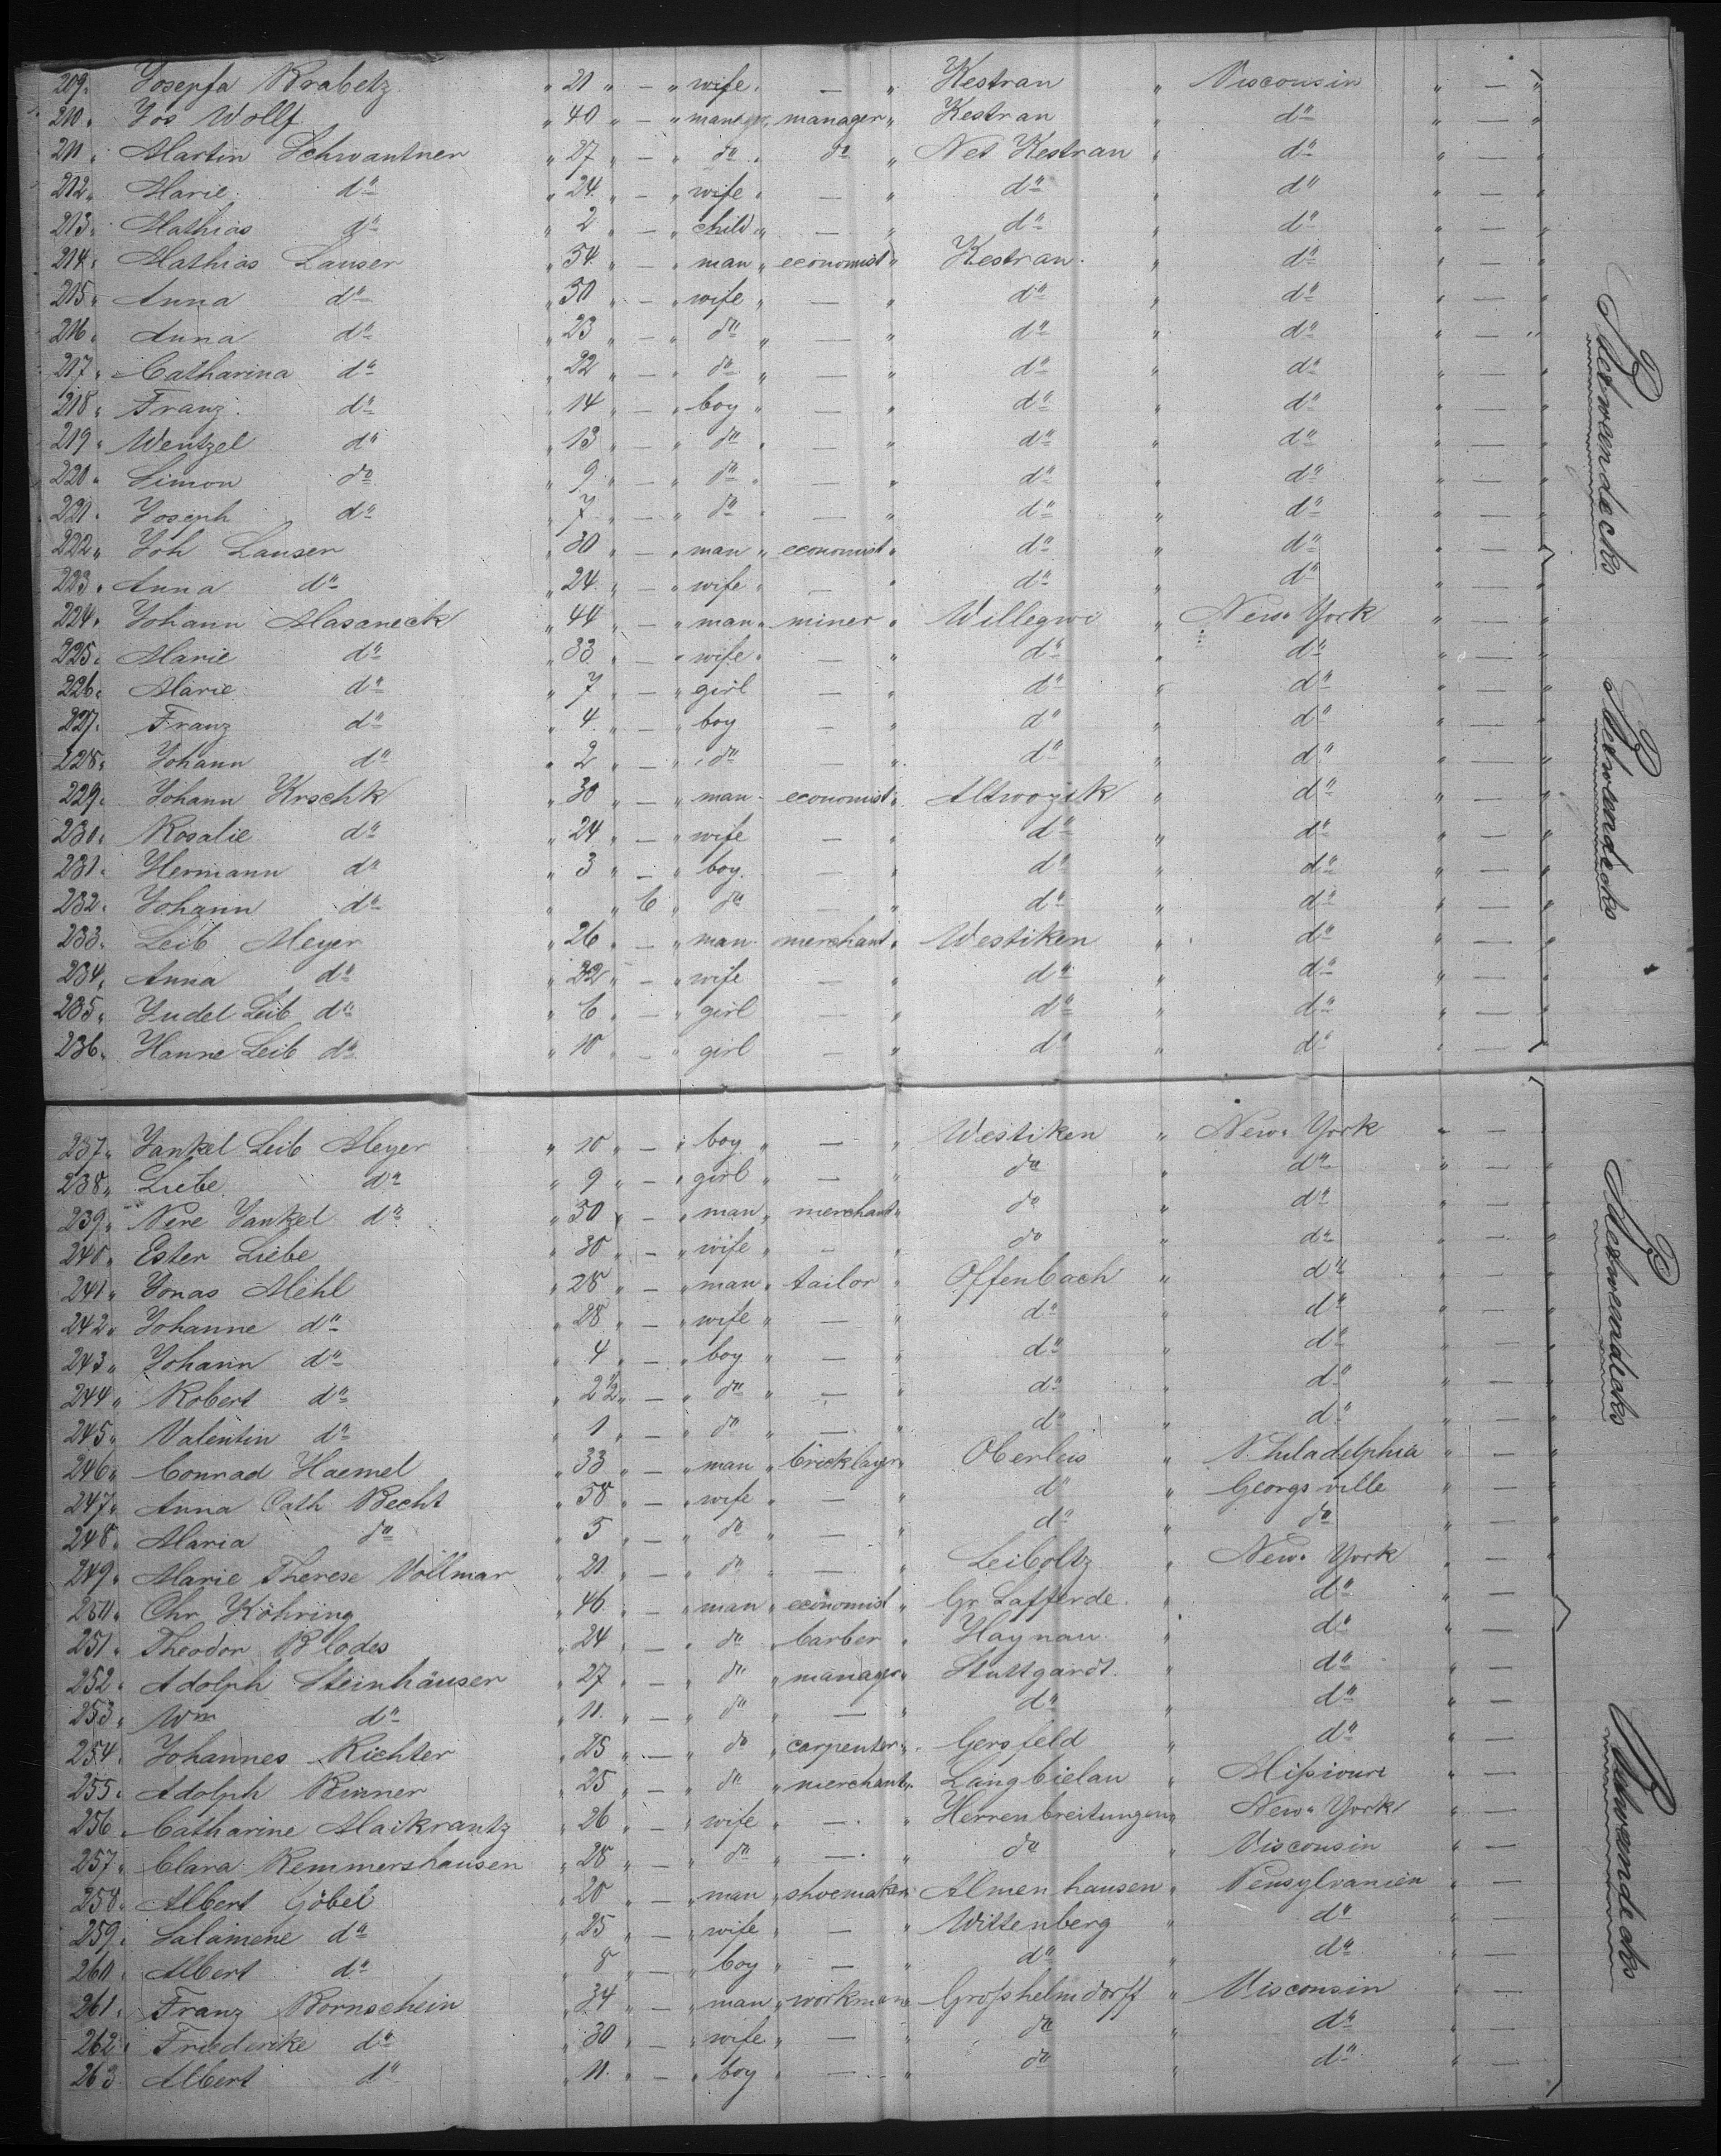 209. Josepfa Krabetz " 21 " — " wife. — " Kestran " Visconsin " — "
210. Jos Wollf " 40 " — " manager, manager " Kestran " do " — "
211. Martin Schwantner " 27 " — " do " do " Net Kestran " do " — "
212. Marie do " 24 " — " wife " — " do " do " — "
213. Mathias do " 2 " — " child " — " do " do " — "
214. Mathias Lauser " 54 " — " man " economist " Kestran " do " — "
215. Anna do " 50 " — " wife " — " do " do " — "
216. Anna do " 23 " — " do " — " do " do " — "
217. Catharina do " 22 " — " do " — " do " do " — "
218. Franz do " 14 " — " boy " — " do " do " — "
219. Wentzel do " 13 " — " do " — " do " do " — "
220. Simon do " 9 " — " do " — " do " do " — "
221. Joseph do " 7 " — " do " — " do " do " — "
222. Joh Lauser " 30 " — " man " economist " do " do " — "
223. Anna do " 24 " — " wife " — " do " do " — "
224. Johann Masaneck " 44 " — " man " miner " Willegwi " New York " — "
225. Marie do " 33 " — " wife " — " do " do " — "
226. Marie do " 7 " — " girl — " do " do " — "
227. Franz do " 4 " — " boy — " do " do " — "
228. Johann do " 2 " — " do — " do " do " — "
229. Johann Krschk " 30 " — " man economist " do " — "
230. Rosalie do " 24 " — " wife — " do " do " — "
231. Hermann do " 3 " — " boy — " do " do " — "
232. Johann do " 6 " do — " do " do " — "
233. Leib Meyer " 26 " — " man merchant " Westiken " do " — "
234. Anna do " 22 " — " wife — " do " do " — "
235. Judel Leib do " 6 " — " girl — " do " do " — "
236. Hanne Leib do " 10 " — " girl — " do " do " —
237. Jankel Leib Meyer " 10 " — " boy " — " Westiken " New York " —
238. Liebe do " 9 " — " girl " — " do " do " — "
239. Nere Jankel do " 50 " — " man " merchant " do " do " — "
240. Ester Liebe " 30 " — " wife " — " do " do " — "
241. Jonas Mehl " 28 " — " man " tailor " Offenbach " do " — "
242. Johanne do " 28 " — " wife " — " do " do " — "
243. Johann do " 4 " — " boy " — " do " do " — "
244. Robert do " 2 1/2 " — " do " — " do " do " — "
245. Valentin do " 1 " — " do " — " do " do " — "
246. Conrad Haemel " 33 " — " man " bricklayer " Oberleis " " — "
247. Anna Cath Becht " 58 " — " wife " — " do " Georgsville " — "
248. Maria do " 5 " — " do " — " do " do " — "
249. Marie Therese Vollmar " 21 " — " do " — " Leiboltz " New York " — "
250. Chr Köhring " 46 " — " man " economist " Gr. Lafferde " do " —
251. Theodor Blodes " 24 " — " do " barber " Haynau " do " —
252. Adolph Steinhäuser " 27 " — " do " manager " Stuttgardt " do " —
253. Wm do " 11 " — " do " — " do " do " —
254. Johannes Richter " 25 " — " do " carpenter " Gersfeld " do " —
255. Adolph Binner " 25 " — " do " merchant " Langbielau " Missiouri " —
256. Catharine Maikrantz " 26 " — " wife " — " Herrenbreitungen " New York " —
257. Clara Remmershausen " 28 " — " do " — " do " Visconsin " —
258. Albert Göbel " 20 " — " man " shoemaker " Almenhausen " Pensylvanien " —
259. Salamene do " 25 " — " wife " — " Wittenberg " do " —
260. Albert do " 8 " — " boy " — " do " do " —
261. Franz Bornschein " 34 " — " man " workman " Grosshelmdorff " Visconsin " —
262. Friederike do " 30 " — " wife " — " do " do " —
263. Albert do " 11 " — " boy " — " do " do " —